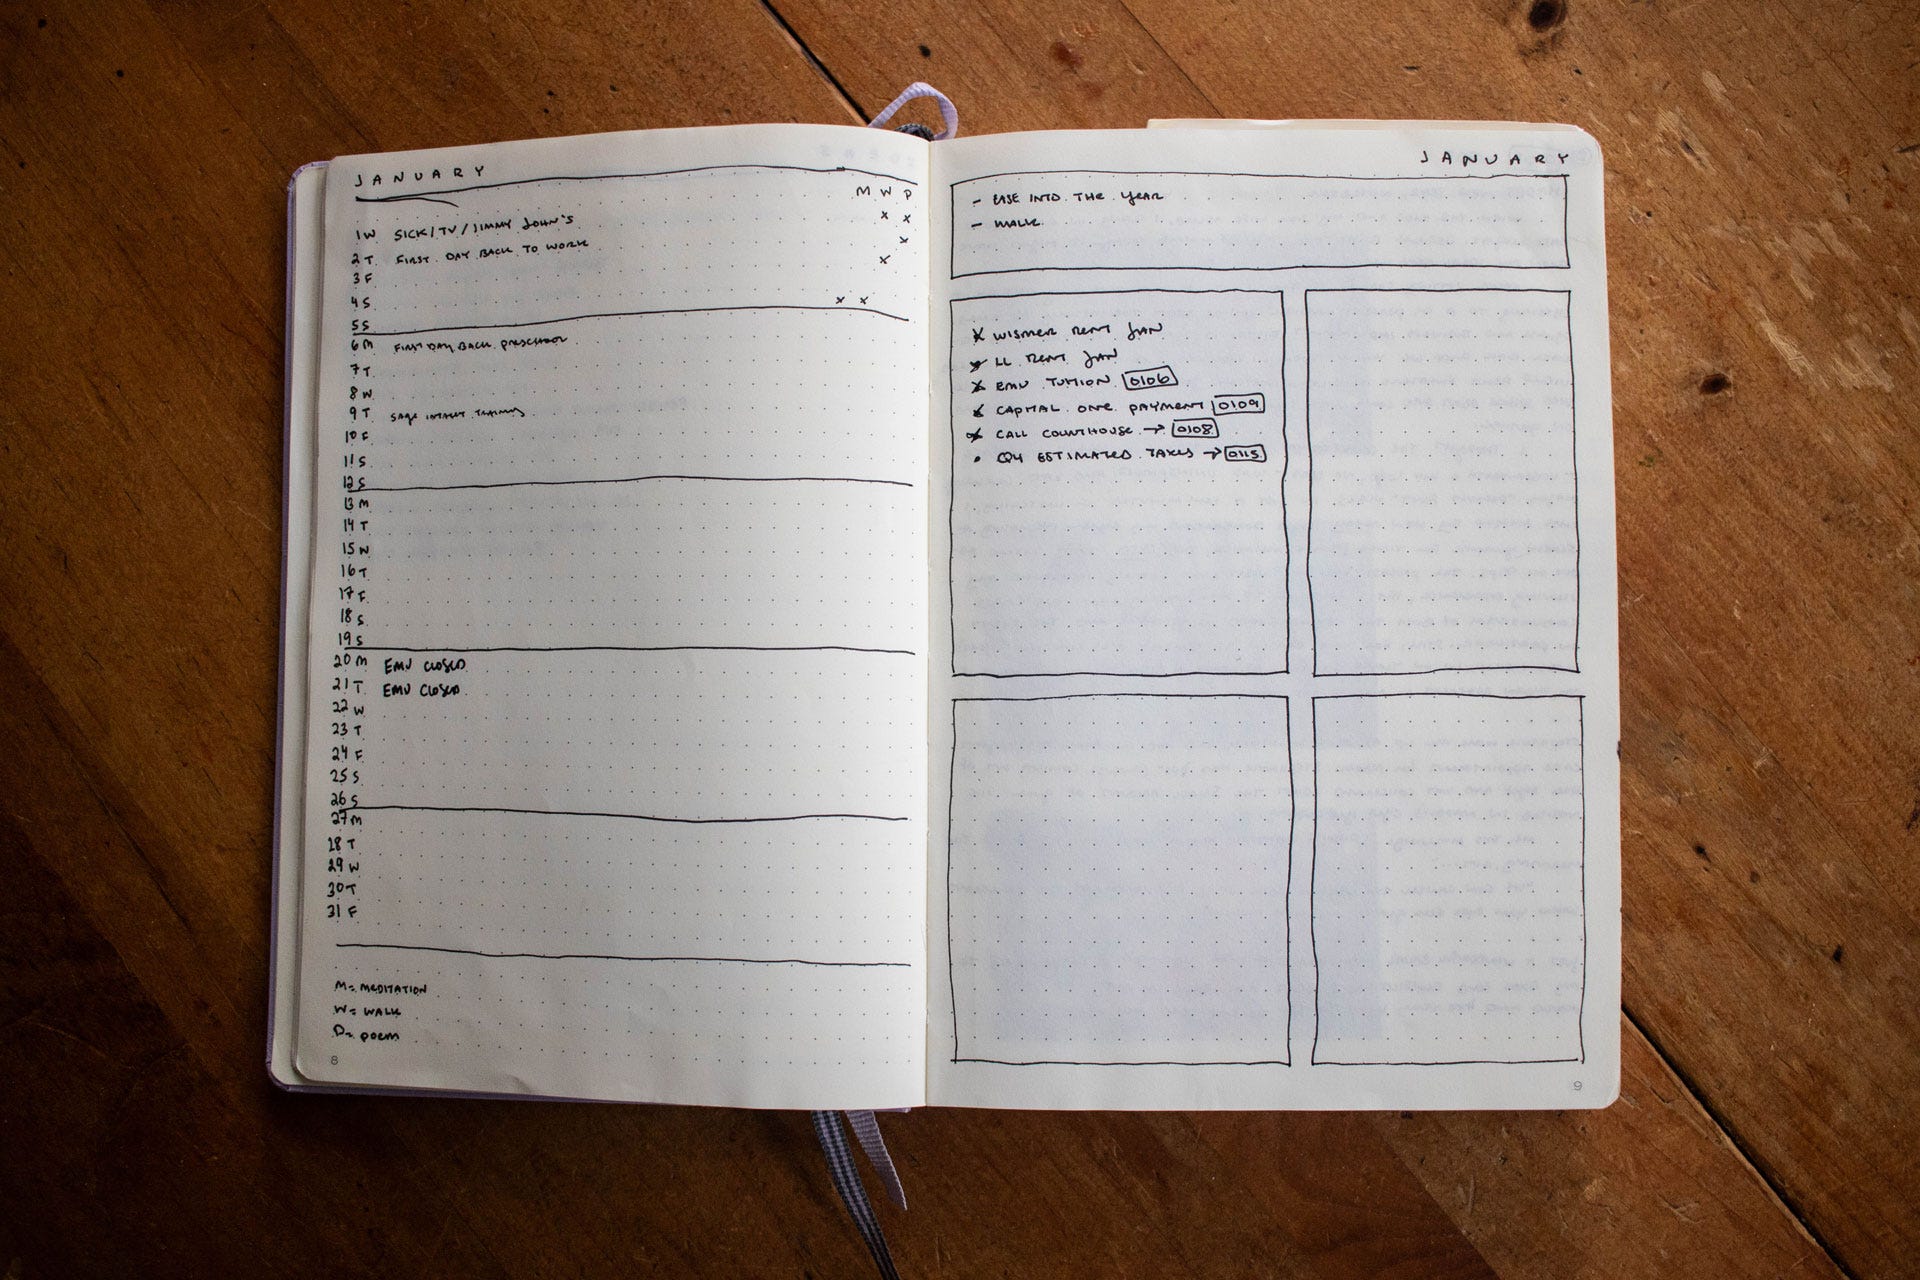 JANUARY
M W P
1 W SICK/TV/JIMMY JOHN'S x x
2 T FIRST DAY BACK TO WORK x
3 F x
4 S x x
5 S
6 M FIRST DAY BACK PRESCHOOL
7 T
8 W
9 T SAGE INTACCT TRAINING
10 F
11 S
12 S
13 M
14 T
15 W
16 T
17 F
18 S
19 S
20 M EMU CLOSED
21 T EMU CLOSED
22 W
23 T
24 F
25 S
26 S
27 M
28 T
29 W
30 T
31 F
M= MEDITATION
W= WALK
P= POEM
8
JANUARY
- EASE INTO THE YEAR
- WALK
x WISMER RENT JAN
x LL RENT JAN
x EMU TUITION 0106
x CAPITAL ONE PAYMENT 0109
x CALL COURTHOUSE → 0108
• Q4 ESTIMATED TAXES → 0115
9